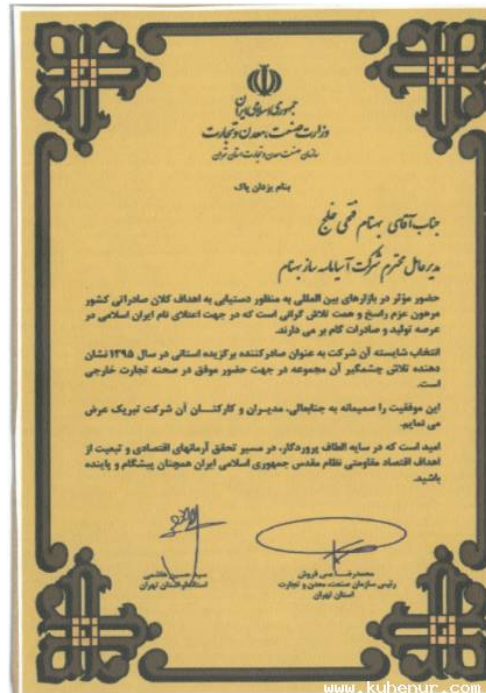 جمهوری اسلامی ایران
وزارت صنعت، معدن و تجارت
سازمان صنعت، معدن و تجارت استان تهران
بنام یزدان پاک
جناب آقای بهنام فتحی خلج
مدیرعامل محترم شرکت آسیابامه ساز بهنام
حضور مؤثر در بازارهای بین المللی به منظور دستیابی به اهداف کلان صادراتی کشور
مرهون عزم راسخ و همت تلاش گرانی است که در جهت اعتلای نام ایران اسلامی در
عرصه تولید و صادرات گام بر می دارند.
انتخاب شایسته آن شرکت به عنوان صادرکننده برگزیده استانی در سال ۱۳۹۵ نشان
دهنده تلاش چشمگیر آن مجموعه در جهت حضور موفق در صحنه تجارت خارجی
است.
این موفقیت را صمیمانه به جنابعالی، مدیـران و کارکنـــان آن شرکت تبریک عرض
می نمایم.
امید است که در سایه الطاف پروردگار، در مسیر تحقق آرمانهای اقتصادی و تبعیت از
اهداف اقتصاد مقاومتی نظام مقدس جمهوری اسلامی ایران همچنان پیشگام و پاینده
باشید.
محمدرضـا مس فروش
رئیس سازمان صنعت، معدن و تجارت
استان تهران
سید حسین هاشمی
استاندار استان تهران
www.kuhenur.com